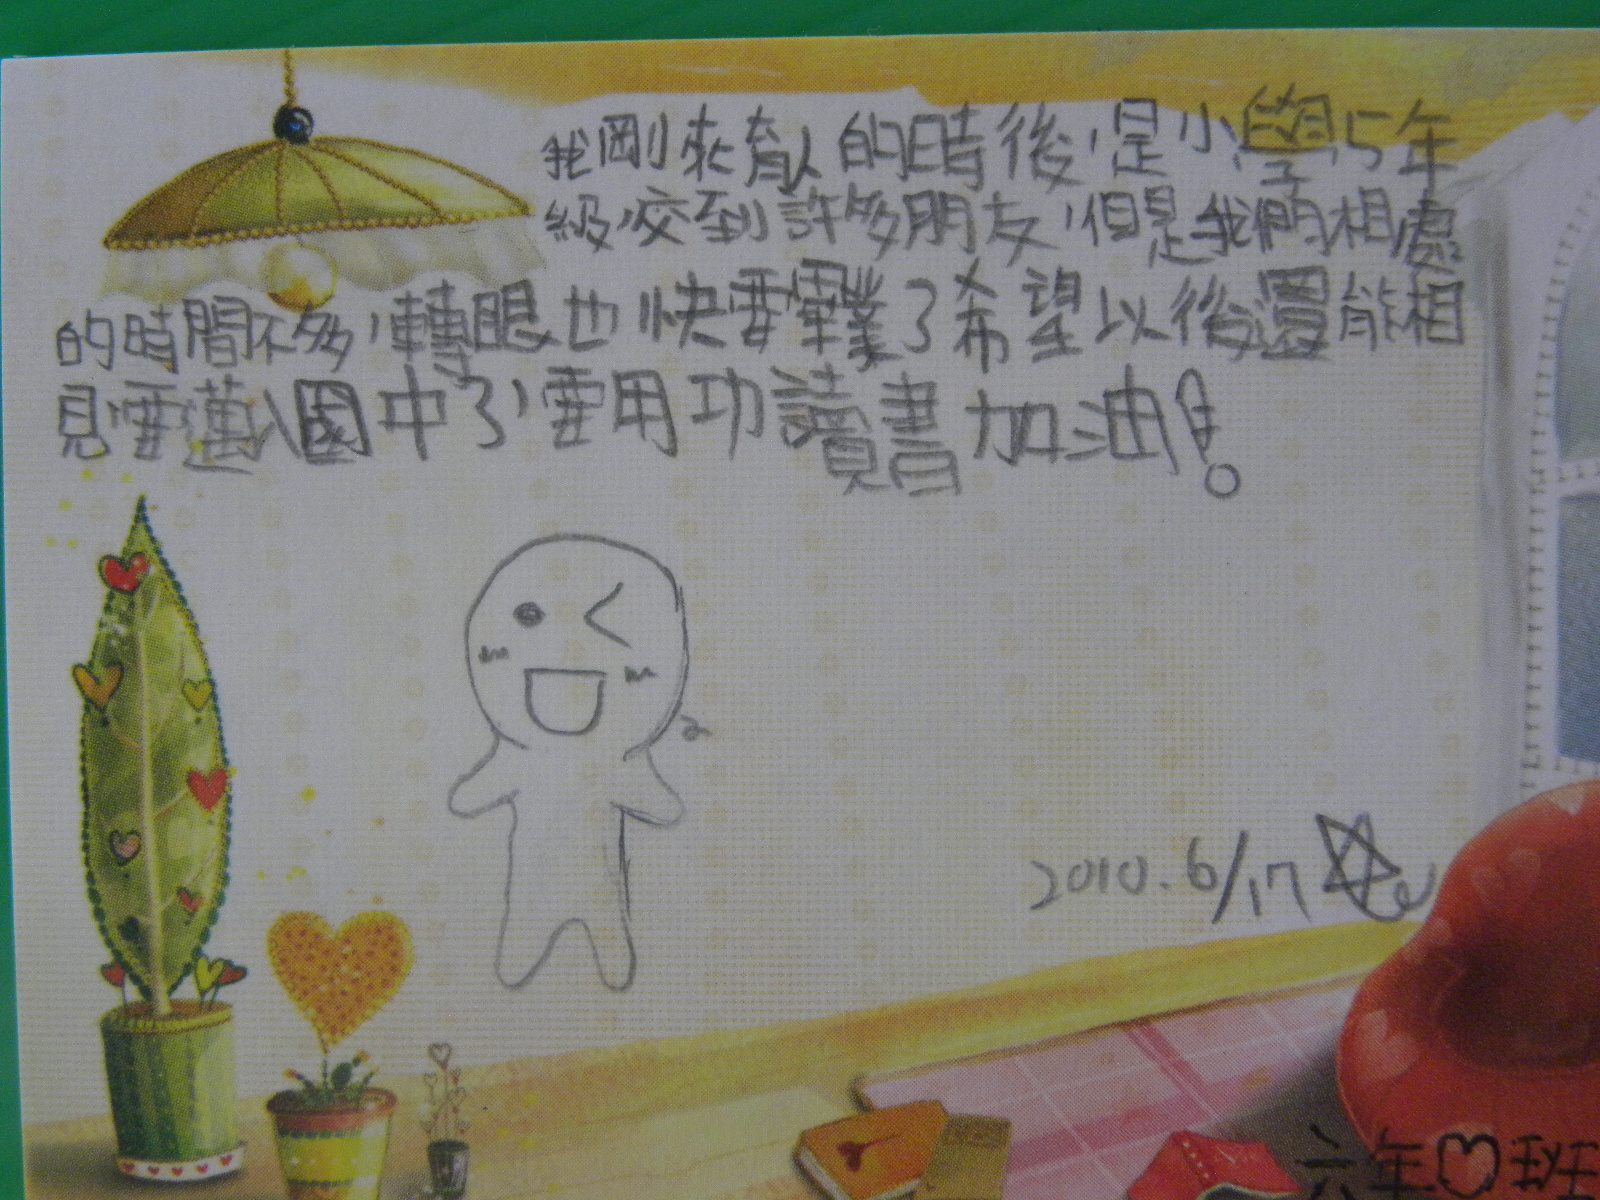 我剛來育人的時後,是小學5年
級,咬到許多朋友,但是我們相處
的時間不多,轉眼也快要畢業了希望以後還能相
見要邁入國中了,要用功讀書加油!
2010.6/17
六年♡班